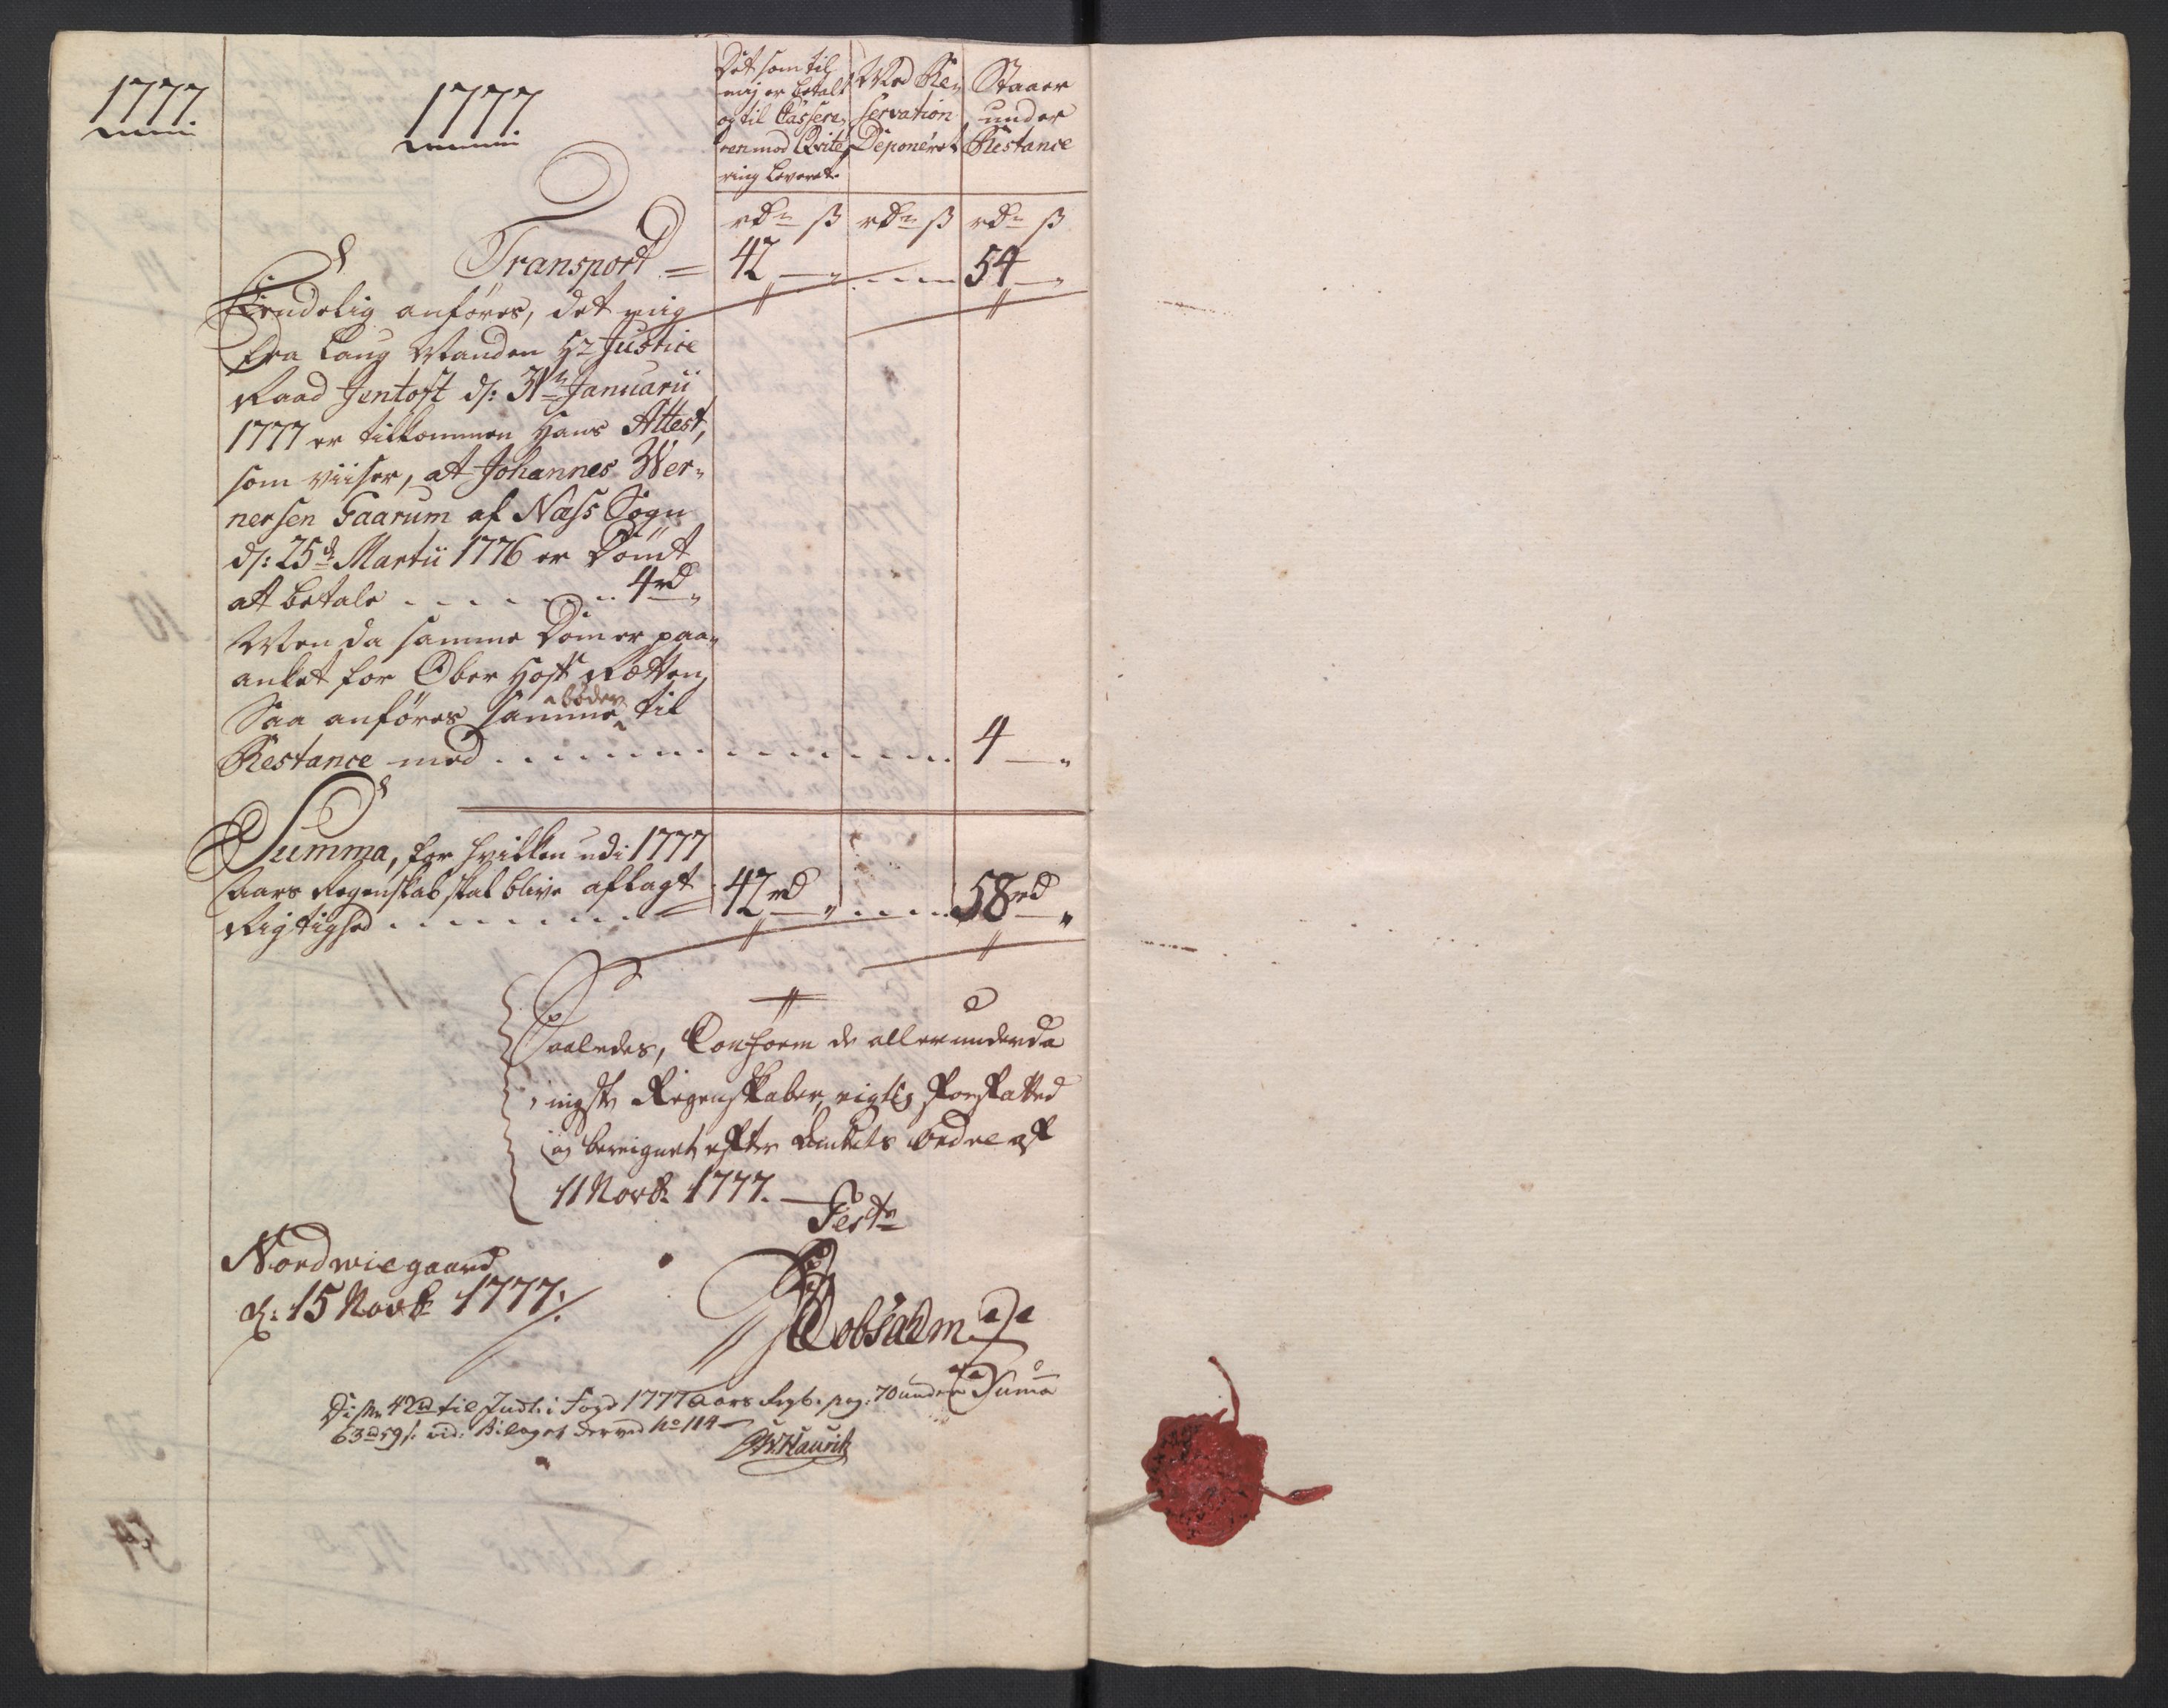 1777.
1777.
Det som til
mig er betalt
og til Casse⸗
ren mod Qvite⸗
ring leveret.
Med Re⸗
servation
Deponeret
Staaer
under
Restance
rdr ß rdr ß rdr ß
Transport = 42 — „ . . . . 54 — „
Endelig anføres, det mig
fra Laug Manden Hr Justice
Raad Jentoft d: 31te Januarii
1777 er tilkommen hans Attest,
som viiser, at Johannes Wer⸗
nersen Gaarum af Næss Sogn
d: 25de Martii 1776 er Dømt
at betale . . . . . . . 4rd „
Men da samme Dom er paa⸗
anket for Ober Hoff Rætten,
Saa anføres samme bøder til
Restance med . . . . . . . . . . . . . 4 — „
Summa, for hvilken udi 1777
Aars Regenskab skal blive aflagt
Rigtighed . . . . . . . = 42rd — „ . . . . 58rd — „
Saaledes, Conform de allerunderda
nigste Regenskaber, rigtig forfatted
og beregnet efter Ordre af
11 Novbr 1777. — Test
Nordwiegaard
d: 15 Novbr 1777.
Dobsadm
Disse 42rd til Indt: i Fogd 1777 Aars Regsb. pag: 70 under Suma
63rd 59 s. vid: Bilaget derved No 114 —
Hauritz